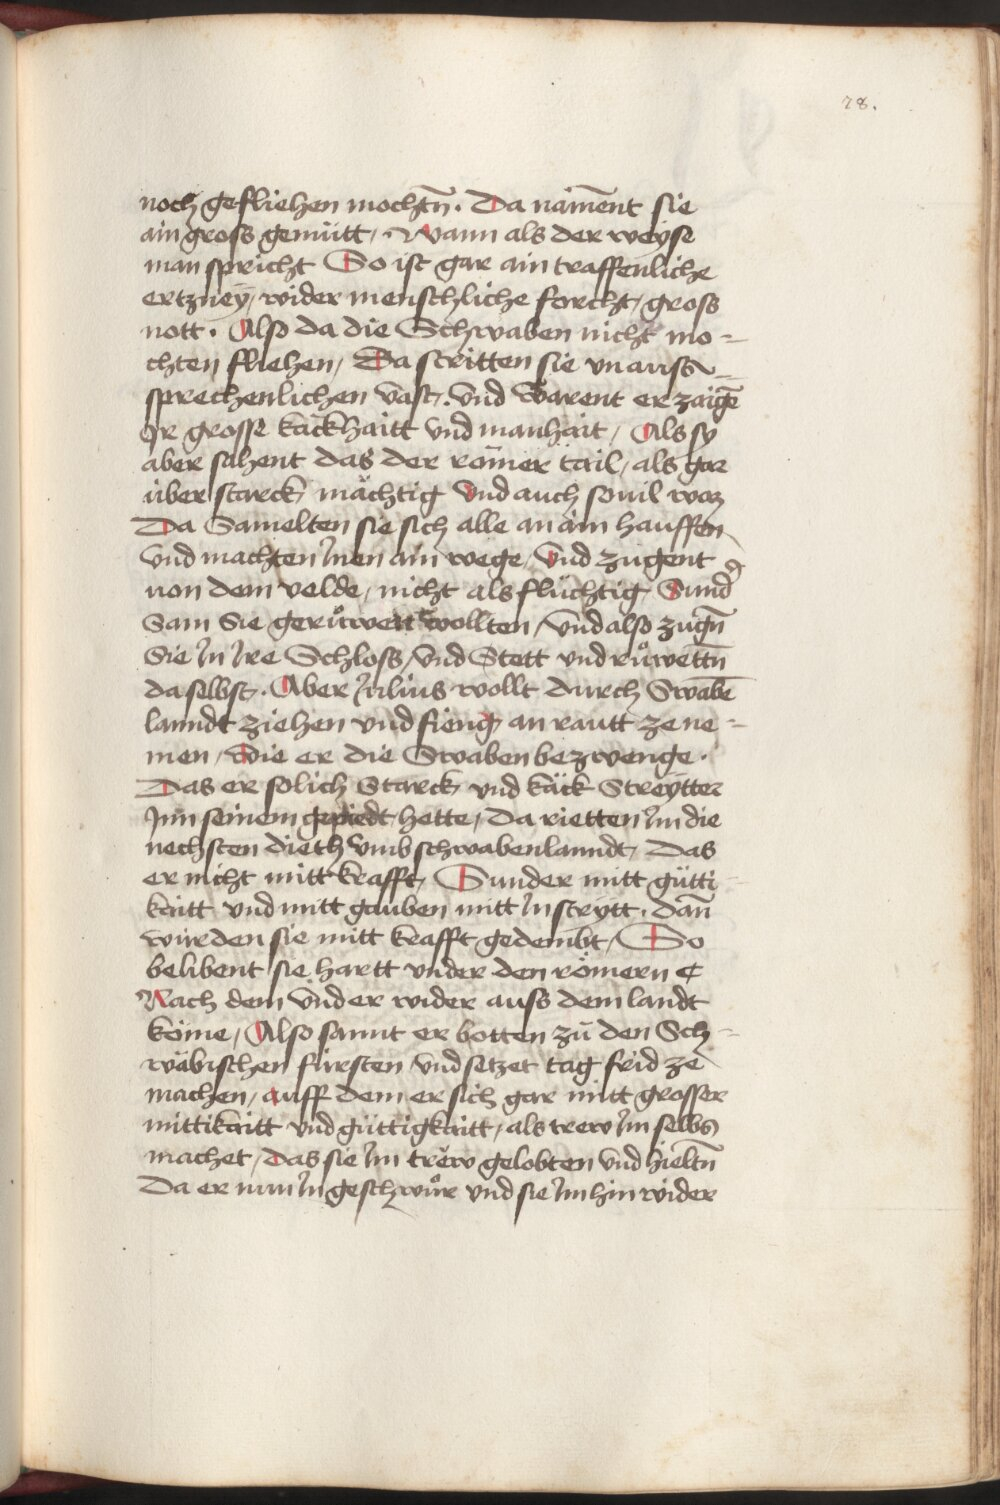 78.
noch gefliehen mocht̄n. Da nāment sie
ain gross gemütt, Wann als der weyse
man spricht So ist gar ain traffenliche
ertzney, wider menschliche forcht, gross
nott. Also da die Schwaben nicht mo-
chten fliehen, Da stritten sie vnauss-
sprechenlichen vast. vnd warent erzaigē
Ir grosse käckhaitt vnd manhait, Als sy
aber sahent das der römer tail, als gar
über starck mächtig vnd auch souil waz
Da Samelten sie sich alle an ain hauffen
vnd machten Inen ain wege, vnd zugent
von dem velde, nicht als flüchtig Sund̉
Sam Sie gerůwett wollten, vnd also zugn̄
Sie In Ire Schloss, vnd Stett vnd růwettn̄
daselbst. Aber Julius wollt durch Swabē
lanndt ziehen vnd fieng an rautt ze ne-
men, wie er die Swaben bezwenge.
Das er solich Starck vnd käck Streytter
Inn seinem gepiedt hette, Da rietten Im die
nechsten dieth vmb schwabenlanndt, Das
er nicht mitt krafft, Sunder mitt gütti-
kaitt vnd mitt gauben mitt In strytt. dan̄
würden sie mitt krafft gedembt, So
belibent sie hartt vnder den römern
Nach dem vnd er wider auss dem landt
köme, Also sannt er botten zů den Sch-
wäbischen fürsten vnd setzet tag frid ze
machen, auff dem er sich gar mitt grosser
mittikaitt vnd güttigkaitt, als trew Im selbs
machet, das sie Im trew gelobten vnd hieltn̄
Da er nun In geschwůr vnd sie Im hin wider